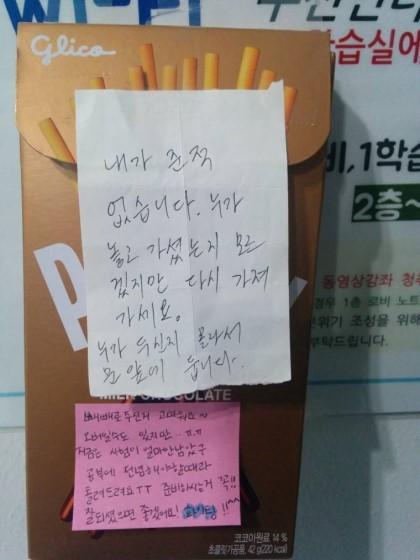 Glico
학습실에
비, 1학습
2층~
내가 준적
없습니다. 누가
놓고 가셨는지 모르
겠지만 다시 가져
가세요.
누가 두신지 몰라서
문 앞에 둡니다.
동영상강좌 청
경우 1층 로비 노트
분위기 조성을 위해
부탁드립니다.
MILK CHOCOLATE
빼빼로 주신거 고마워요~
오바일수도 있지만 ㅠ.ㅠ
지금은 시험이 얼마안남았구
공부에 전념해야할때라
돌려드려요TT 준비하시는거 꼭!!
잘되셨으면 좋겠어요! 화이팅!!^^
코코아원료 14 %
초콜릿가공품, 42 g(220 kcal)